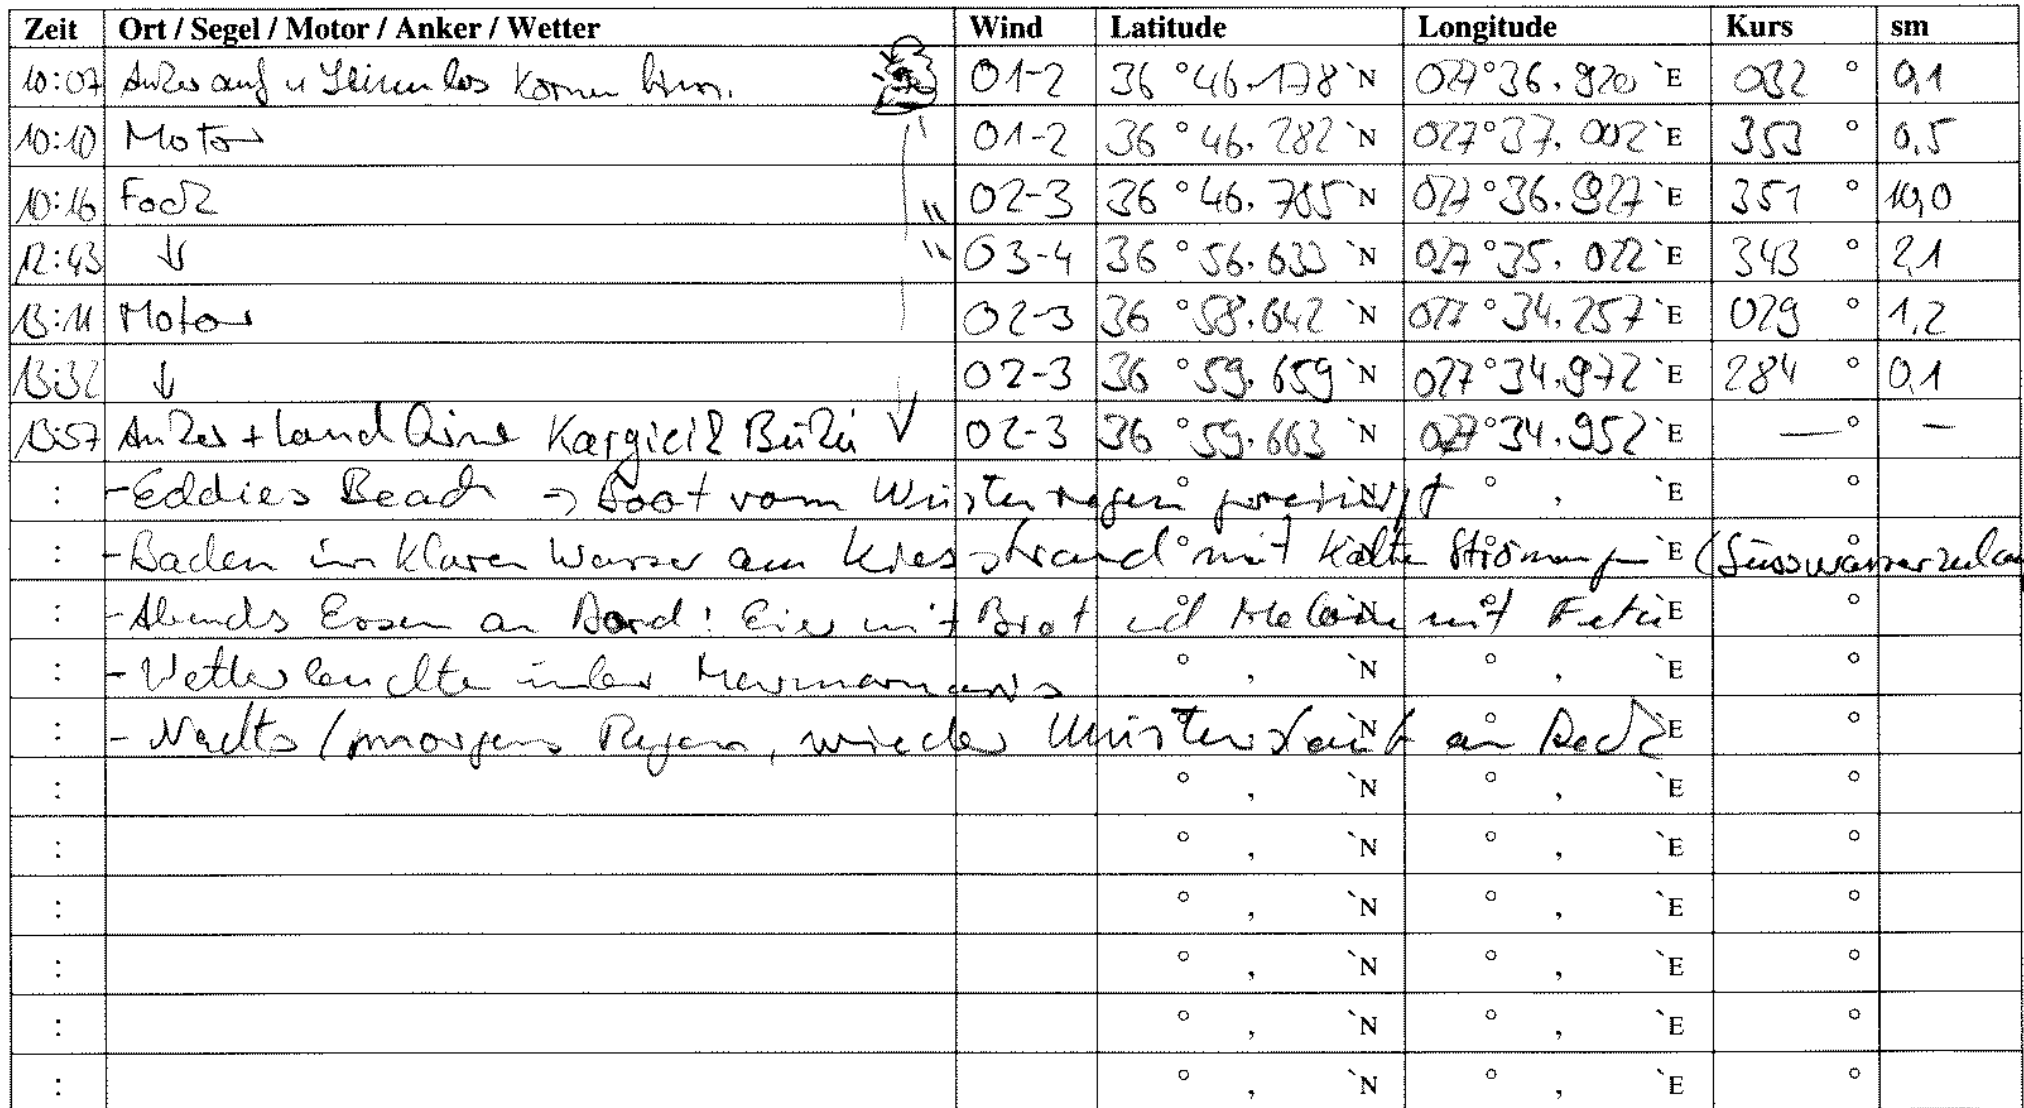 Zeit Ort / Segel / Motor / Anker / Wetter Wind Latitude Longitude Kurs sm
10:07 Anker auf u Leinen los Körmen 01-2 36 ° 46.178 `N 027°36.920 `E 032 ° 0,1
10:10 Motor " 01-2 36 ° 46.282 `N 027°37.002 `E 353 ° 0,5
10:16 Fock " 02-3 36 ° 46.705 `N 027°36.927 `E 351 ° 10,0
12:43 ↓ " 03-4 36 ° 56.633 `N 027°35.022 `E 343 ° 2,1
13:11 Motor 02-3 36 ° 58.642 `N 027°34.257 `E 029 ° 1,2
13:32 ↓ 02-3 36 ° 59.659 `N 027°34.972 `E 284 ° 0,1
13:57 Anker + Landleine Kargicik Bükü 02-3 36 ° 59.663 `N 027°34.952 `E — ° –
: - Eddies Beach → Boot vom Wüstenregen gereinigt ° ° , `E °
: - Baden im klaren Wasser am Kiesstrand mit kalten Strömungen `E (Süsswasserzulau
: - Abends Essen an Bord: Eier mit Brot und Melone mit Feta `E °
: - Wetterleuchten in der ° , `N ° , `E °
: - Nachts / morgens Regen, wieder Wüstenstaub an Deck `E °
: ° , `N ° , `E °
: ° , `N ° , `E °
: ° , `N ° , `E °
: ° , `N ° , `E °
: ° , `N ° , `E °
: ° , `N ° , `E °